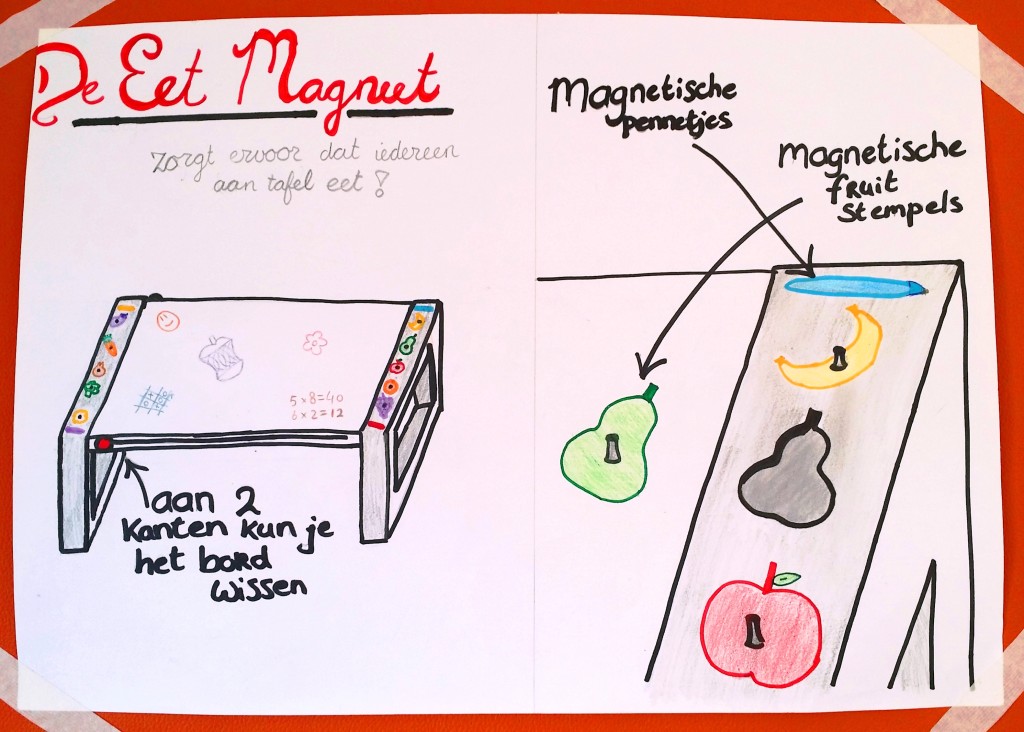 De Eet Magneet
Zorgt ervoor dat iedereen
aan tafel eet!
5x8=40
6x2=12
aan 2
kanten kun je
het bord
wissen
Magnetische
pennetjes
Magnetische
fruit
stempels